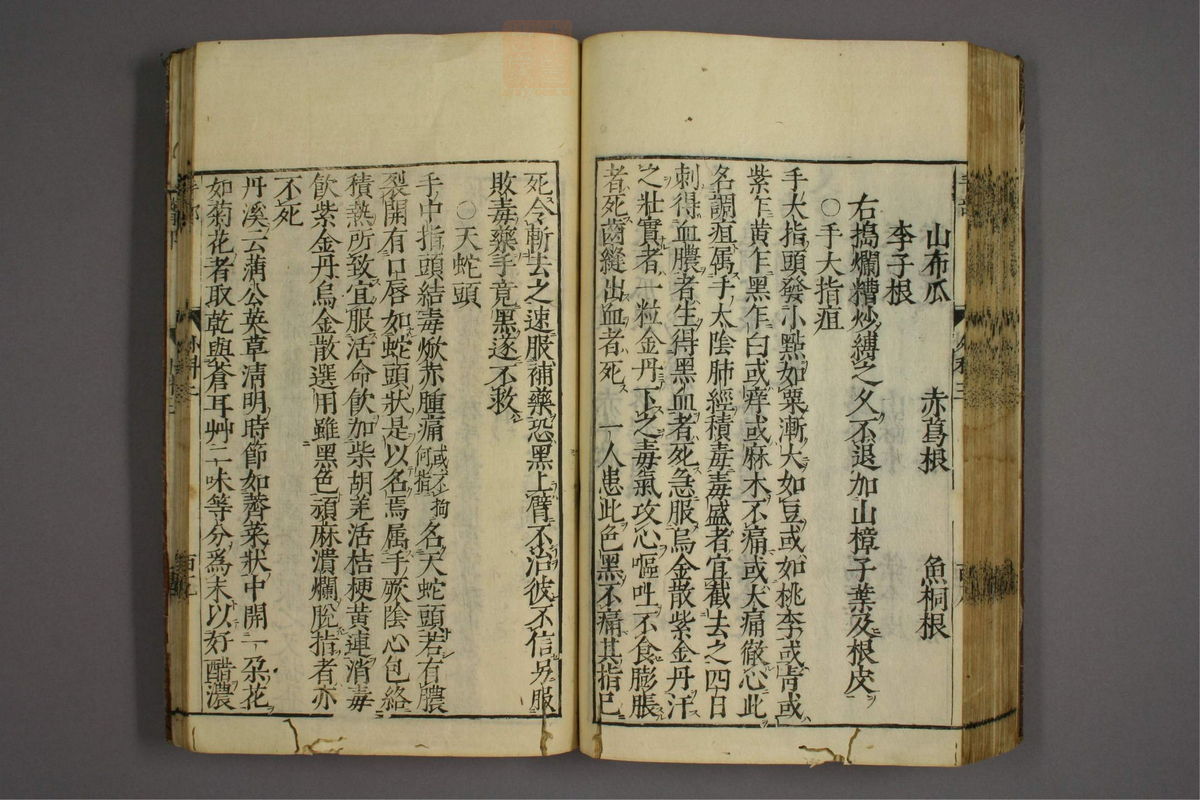 山布瓜 赤葛根 魚桐根
李子根
右搗爛糟炒縛之久不退加山樟子葉及根皮
○手大指疽
手大指頭發小點如粟漸大如豆或如桃李或青或
紫乍黃乍黑乍白或痒或麻木不痛或大痛徹心此
名調疽屬手太陰肺經積毒毒盛者宜截去之四日
刺得血膿者生得黑血者死急服烏金散紫金丹汗
之壯實者一粒金丹下之毒氣攻心嘔吐不食膨脹
者死齒縫出血者死 一人患此色黑不痛其指已
死令斬去之速服補藥恐黑上臂不治彼不信另服
敗毒藥手竟黑遂不救
○天蛇頭
手中指頭結毒焮赤腫痛或不拘何指名天蛇頭若有膿
裂開有口唇如蛇頭狀是以名焉属手厥陰心包絡
積熱所致宜服活命飲加柴胡羌活桔梗黃連消毒
飲紫金丹烏金散選用雖黑色頑麻潰爛脫指者亦
不死
丹溪云蒲公英草清明時節如薺菜狀中開一朶花
如菊花者取乾與蒼耳艸二味等分爲末以好醋濃